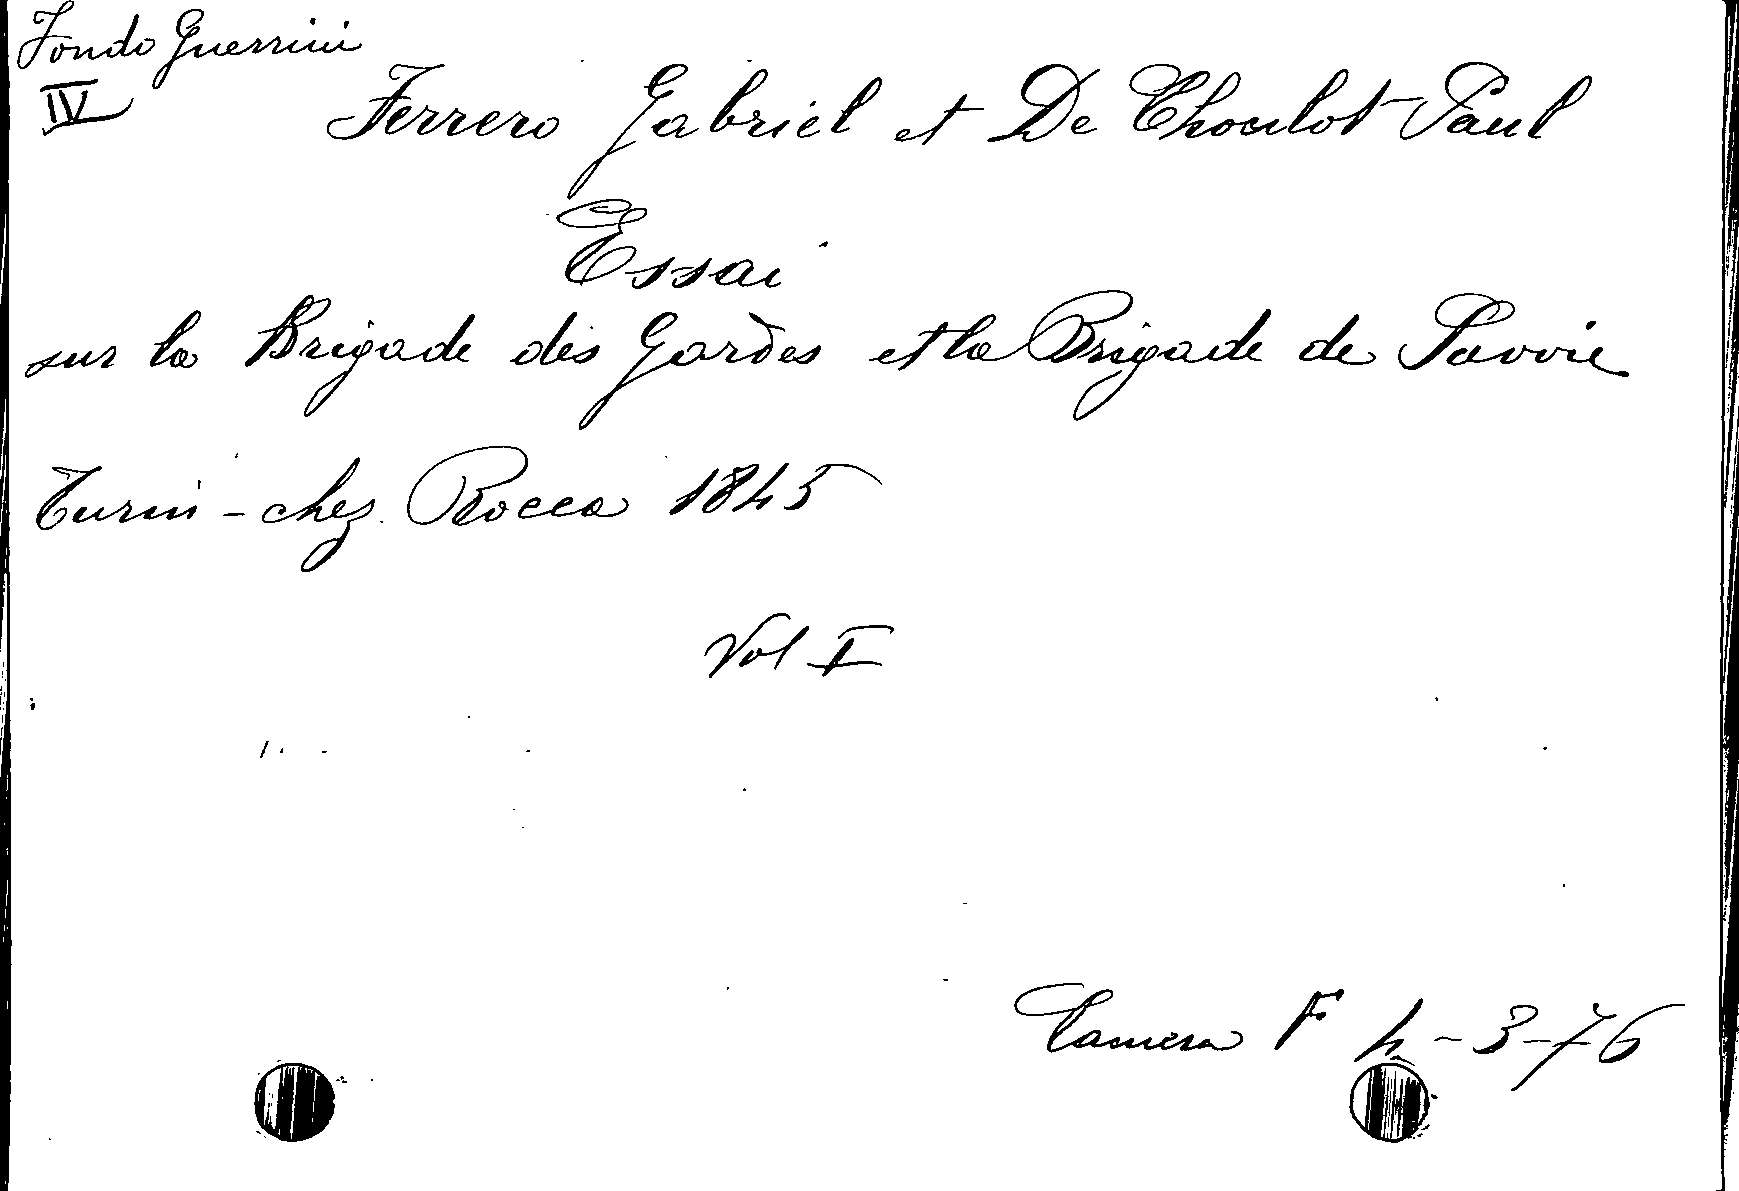 Fondo Guerrini
IV
Ferrero Gabriel et De Choulot Paul
Essai
sur la Brigade des Gardes et la Brigade de Savoie
Turin - chez Rocca 1845
Vol I
Camera F 4-3-76